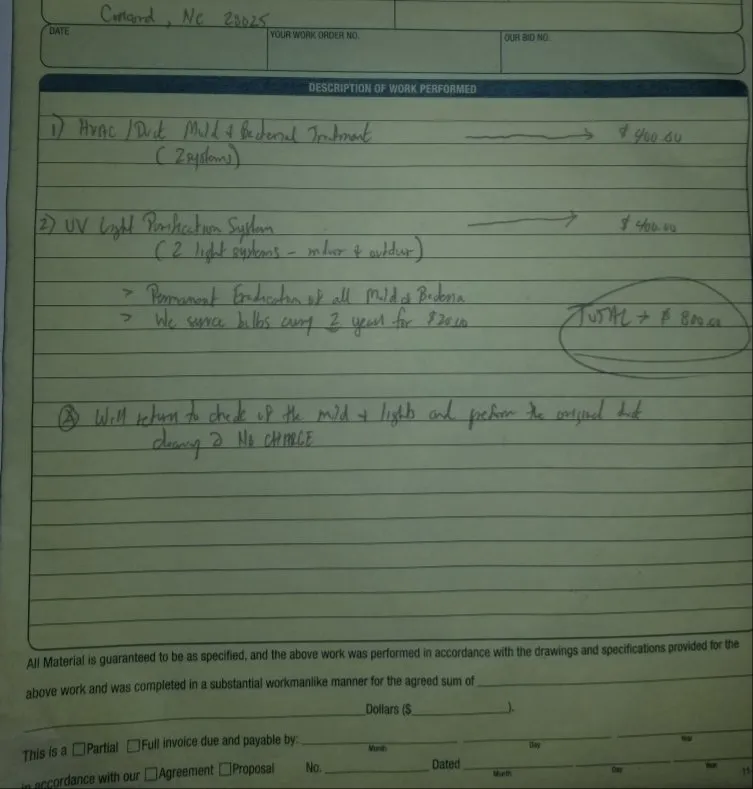 Concord, NC 20025
DATE YOUR WORK ORDER NO. OUR BID NO.
DESCRIPTION OF WORK PERFORMED
1) HVAC / Duct Mold & Bacterial Treatment → $400.00
(2 systems)
2) UV Light Purification System → $400.00
(2 light systems - indoor & outdoor)
> Permanent Eradication of all Mold & Bacteria
> We service bulbs every 2 years for $20.00
TOTAL → $ 800.00
Will return to check up the mold & lights and perform the original duct
cleaning @ NO CHARGE
All Material is guaranteed to be as specified, and the above work was performed in accordance with the drawings and specifications provided for the
above work and was completed in a substantial workmanlike manner for the agreed sum of
Dollars ($ ).
This is a □Partial □Full invoice due and payable by:
Month Day Year
in accordance with our □Agreement □Proposal No. Dated
Month Day Year
11